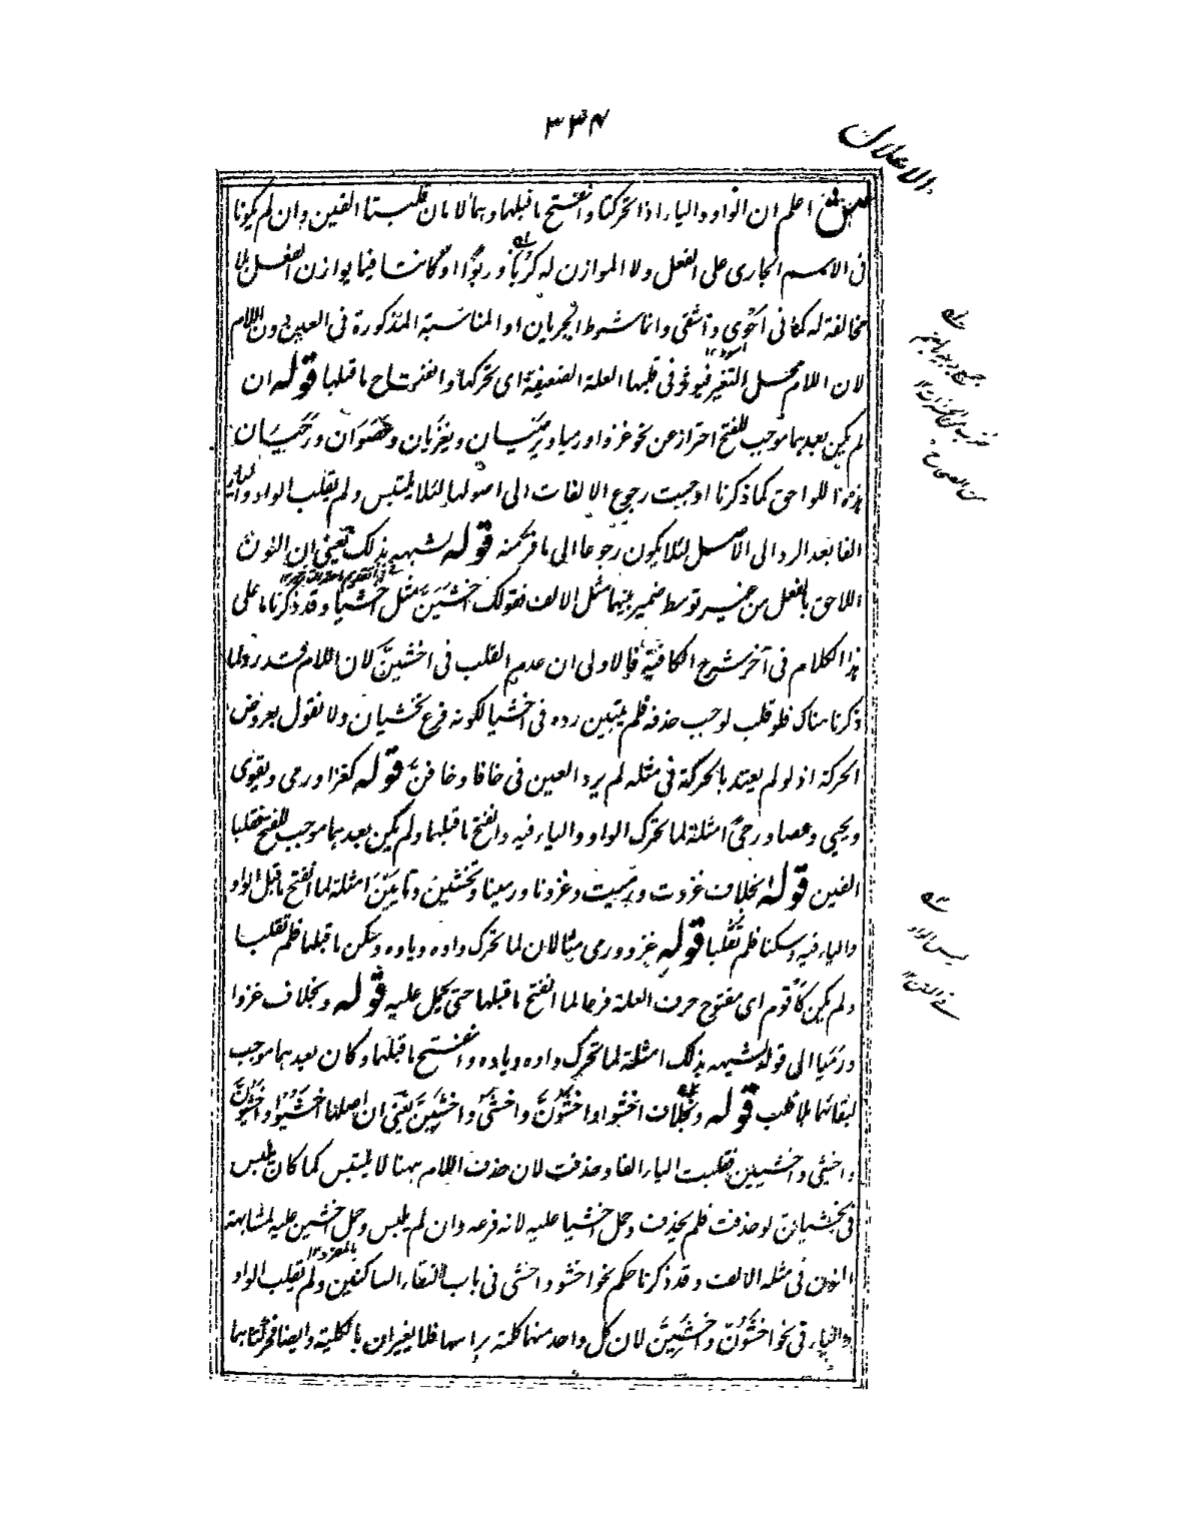 ٣٣٤
الاعلال
ش اعلم ان الواو والياء اذا تحركتا وانفتح ما قبلهما وهما لامان قلبتا الفين وان لم يكونا
فى الاسم الجارى على الفعل ولا الموازن له كربا وربوا او كانتا فيما يوازن الفعل بلا
مخالفة له كما فى احوى واشقى وانما شرط الجريان او المناسبة المذكورة فى العين دون اللام
لان اللام محل التغير فيؤثر فى قلبها العلة الضعيفة اى تحركها وانفتاح ما قبلها قوله ان
لم يكن بعدهما موجب للفتح احتراز عن نحو غزوا ورميا ويرميان ويغزيان وعصوان ورحيان
هذه اللواحق كما ذكرنا اوجبت رجوع الالفات الى اصولها لئلا يلتبس ولم يقلب الواو والياء
الفا بعد الرد الى الاصل لئلا يكون رجوعا الى ما فر منه قوله لشبهه بذلك يعنى ان النون
اللاحق بالفعل من غير توسط ضمير بينهما مثل الالف فقولك اخشين مثل اخشيا وقد ذكرنا ما على
هذا الكلام فى آخر شرح الكافية فالاولى ان عدم القلب فى اخشين لان اللام قد رد لما
ذكرنا هناك فلو قلب لوجب حذفه فلم يتبين رده فى اخشيا لكونه فرع يخشيان ولا نقول بعروض
الحركة اذ لو لم يعتد بالحركة فى مثله لم يرد العين فى خافا وخافن قوله كغزا ورمى ويقوى
ويحيى وعصا ورحى امثلة لما تحرك الواو والياء فيه وانفتح ما قبلهما ولم يكن بعدهما موجب للفتح فقلبا
الفين قوله بخلاف غزوت ورميت وغزونا ورمينا وتخشين وتأبين امثلة لما انفتح ما قبل الواو
والياء فيه وسكنا فلم تقلبا قوله غزو ورمى مثالان لما تحرك واوه وياؤه وسكن ما قبلهما فلم تقلب
ولم يكن كأقوم اى مفتوح حرف العلة فرعا لما انفتح ما قبلها حتى يحمل عليه قوله وبخلاف غزوا
ورميا الى قوله لشبهه بذلك امثلة لما تحرك واوه وياؤه وانفتح ما قبلهما وكان بعدهما موجب
لبقائهما بلا قلب قوله وبخلاف اخشوا واخشون واخشى واخشين يعنى ان اصلها اخشيوا واخشيون
واخشيى واخشيين فقلبت الياء الفا وحذفت لان حذف اللام ههنا لا يلتبس كما كان يلبس
فى يخشيان لو حذفت فلم يحذف وحمل اخشيا عليه لانه فرعه وان لم يلبس وحمل اخشين عليه لمشابهة
النون فى مثله الالف وقد ذكرنا حكم نحو اخشو واخشى فى باب التقاء الساكنين ولم يقلب الواو
والياء فى نحو اخشون واخشين لان كل واحد منهما كلمة براسها فلا يغيران بالكلية وايضا فحركتاهما
من الصحاح
ليس الواو